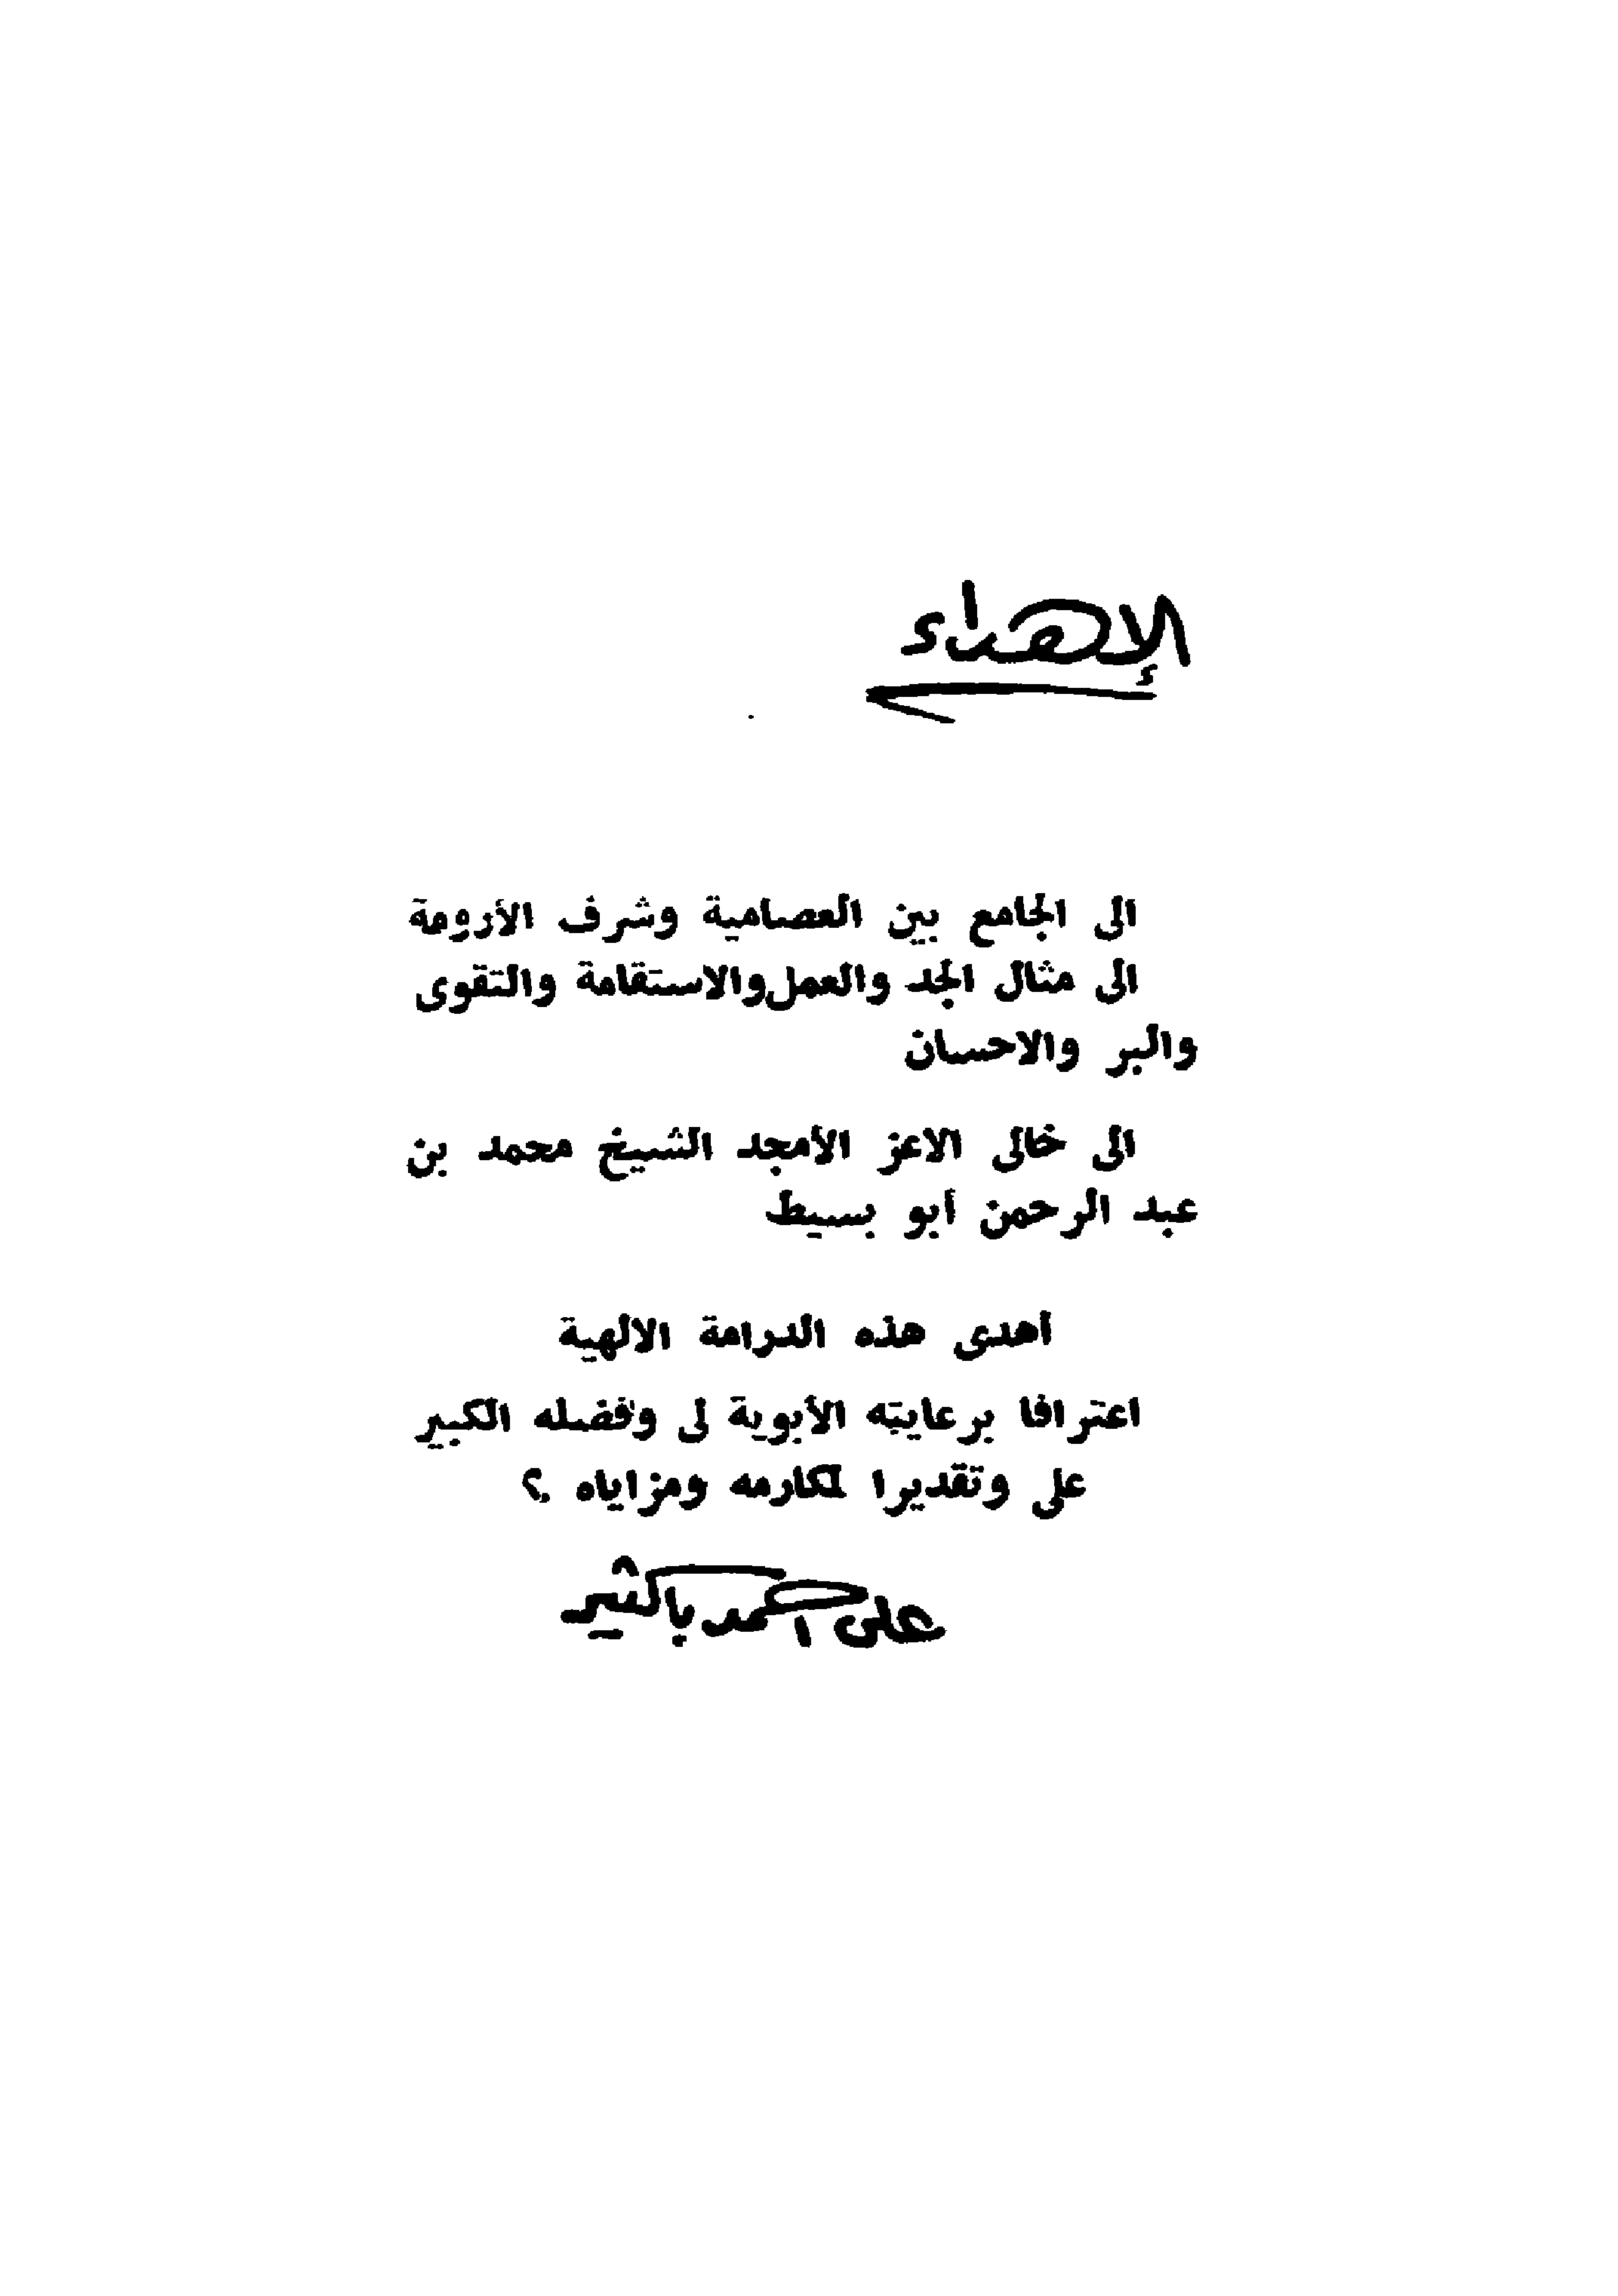 الإهداء
الى الجامع بين العصامية وشرف الأرومة
الى مثال الجد والعمل والاستقامة والتقوى
والبر والاحسان
الى خالى الاعز الأمجد الشيخ محمد بن
عبد الرحمن أبو بسيط
أهدى هذه الدرامة الالهية
اعترافا برعايته الأبوية لى وفضله الكبير
على وتقديرا لمكارمه ومزاياه ؟
على احمد باكثير